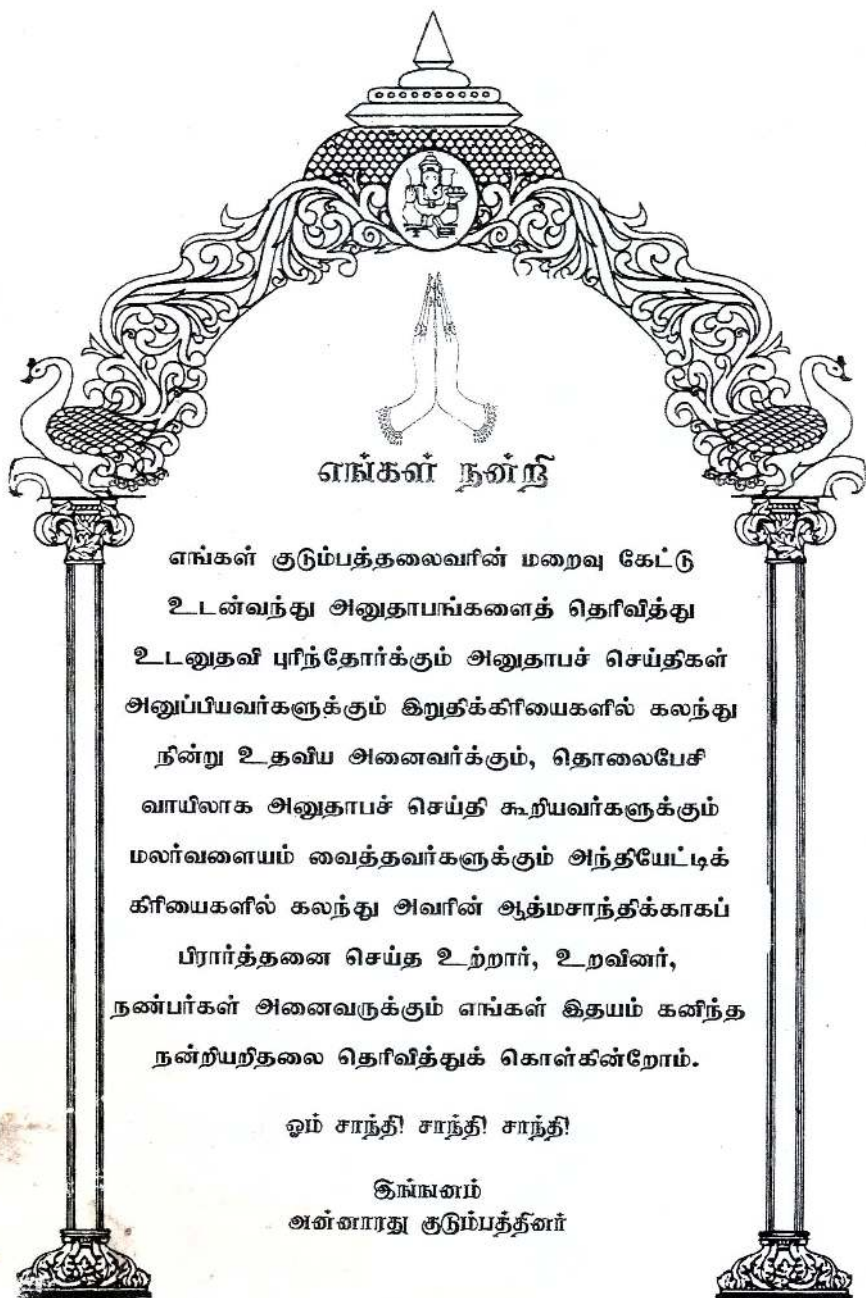 எங்கள் நன்றி
எங்கள் குடும்பத்தலைவரின் மறைவு கேட்டு
உடன்வந்து அனுதாபங்களைத் தெரிவித்து
உடனுதவி புரிந்தோர்க்கும் அனுதாபச் செய்திகள்
அனுப்பியவர்களுக்கும் இறுதிக்கிரியைகளில் கலந்து
நின்று உதவிய அனைவர்க்கும், தொலைபேசி
வாயிலாக அனுதாபச் செய்தி கூறியவர்களுக்கும்
மலர்வளையம் வைத்தவர்களுக்கும் அந்தியேட்டிக்
கிரியைகளில் கலந்து அவரின் ஆத்மசாந்திக்காகப்
பிரார்த்தனை செய்த உற்றார், உறவினர்,
நண்பர்கள் அனைவருக்கும் எங்கள் இதயம் கனிந்த
நன்றியறிதலை தெரிவித்துக் கொள்கின்றோம்.
ஓம் சாந்தி! சாந்தி! சாந்தி!
இங்ஙனம்
அன்னாரது குடும்பத்தினர்